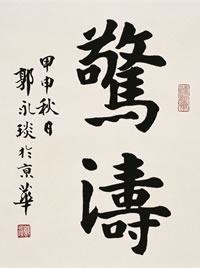 驚濤
甲申秋日
郭永琰於京華